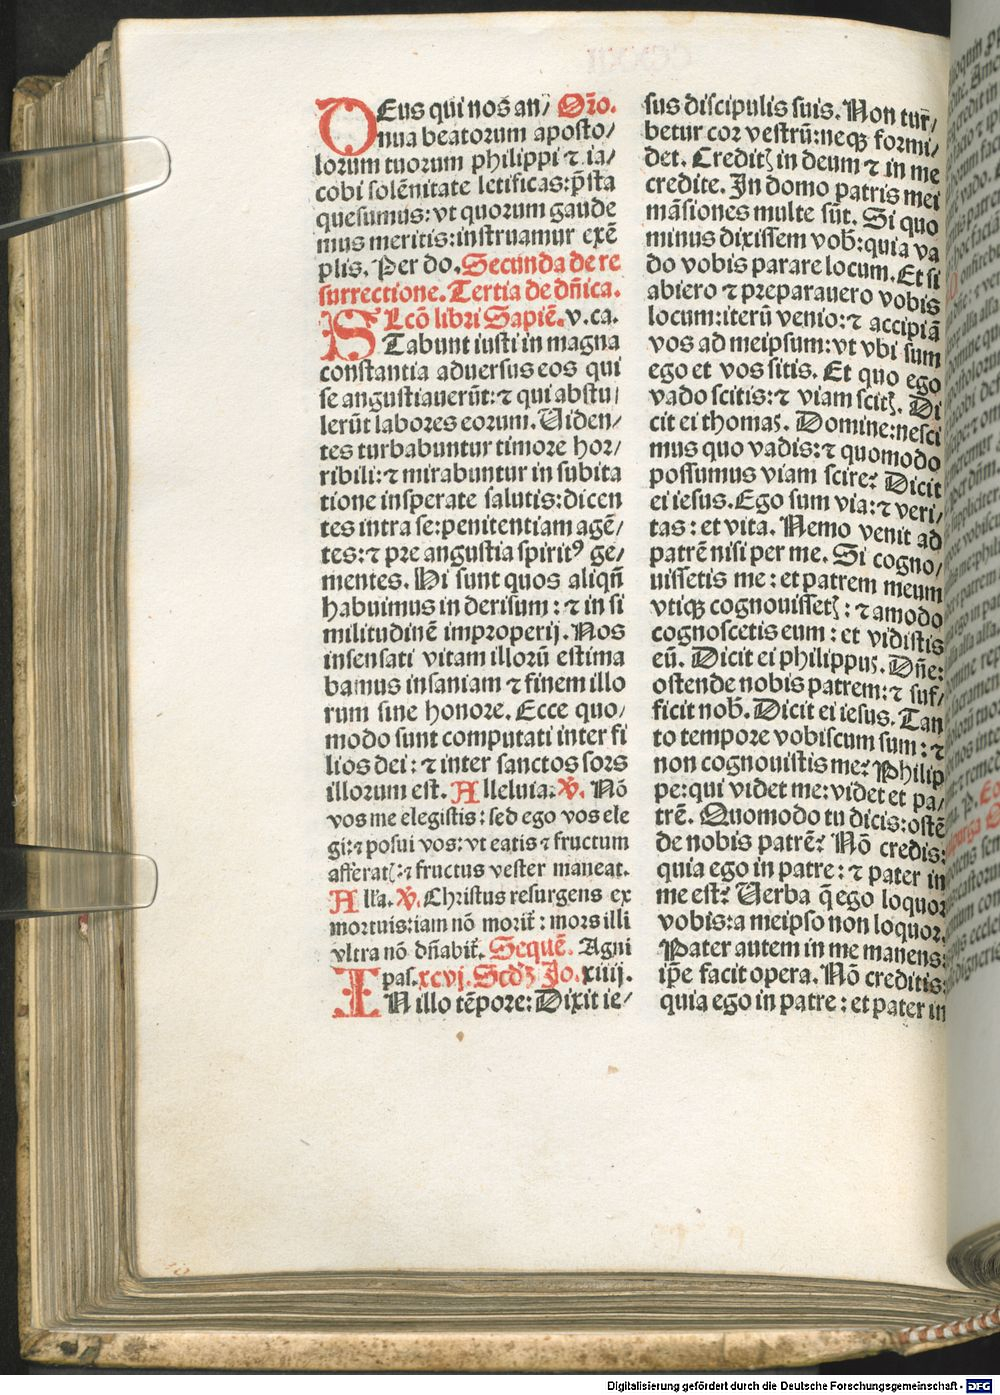 DEus qui nos an/ Or̄o.
nua beatorum aposto/
lorum tuorum philippi ⁊ ia/
cobi solēnitate letificas:p̄sta
quesumus: vt quorum gaude
mus meritis:instruamur exē
plis. Per do. Secunda de re
surrectione. Tertia de dn̄ica.
Lcō libri Sapiē. v.ca.
STabunt iusti in magna
constantia aduersus eos qui
se angustiauerūt: ⁊ qui abstu/
lerūt labores eorum. Uiden/
tes turbabuntur timore hor/
ribili: ⁊ mirabuntur in subita
tione insperate salutis: dicen
tes intra se: penitentiam agē/
tes: ⁊ pre angustia spiritꝰ ge/
mentes. Hi sunt quos aliqn̄
habuimus in derisum: ⁊ in si
militudinē improperij. Nos
insensati vitam illorū estima
bamus insaniam ⁊ finem illo
rum sine honore. Ecce quo/
modo sunt computati inter fi
lios dei: ⁊ inter sanctos sors
illorum est. Alleluia. ℣. Nō
vos me elegistis: sed ego vos ele
gi: ⁊ posui vos: vt eatis ⁊ fructum
afferatꝫ: ⁊ fructus vester maneat.
All'a. ℣. Christus resurgens ex
mortuis: iam nō morit̄: mors illi
vltra nō dn̄abit̄. Sequē. Agni
pas. xcvj. Scd'ꝫ Jo. xiiij.
IN illo tēpore: Dixit ie/
sus discipulis suis. Non tur̄/
betur cor vestrū: neqꝫ formi/
det. Creditꝫ in deum ⁊ in me
credite. In domo patris mei
māsiones multe sūt. Si quo
minus dixissem vob̄: quia va
do vobis parare locum. Et si
abiero ⁊ preparauero vobis
locum: iterū venio: ⁊ accipiā
vos ad meipsum: vt vbi sum
ego et vos sitis. Et quo ego
vado scitis: ⁊ viam scitꝫ. Di
cit ei thomas. Domine: nesci
mus quo vadis: ⁊ quomodo
possumus viam scire? Dicit
ei iesus. Ego sum via: ⁊ veri/
tas: et vita. Nemo venit ad
patrē nisi per me. Si cogno/
uissetis me: et patrem meum
vtiqꝫ cognouissetꝫ: ⁊ amodo
cognoscetis eum: et vidistis
eū. Dicit ei philippus. Dn̄e:
ostende nobis patrem: ⁊ suf/
ficit nob̄. Dicit ei iesus. Tan
to tempore vobiscum sum: ⁊
non cognouistis me? Philip
pe: qui videt me: videt et pa/
trē. Quomodo tu dicis: ostē
de nobis patrē? Nō credis:
quia ego in patre: ⁊ pater in
me est? Uerba q̄ ego loquor
vobis: a meipso non loquor.
Pater autem in me manens:
ip̄e facit opera. Nō creditis:
quia ego in patre: et pater in
Digitalisierung gefördert durch die Deutsche Forschungsgemeinschaft - DFG